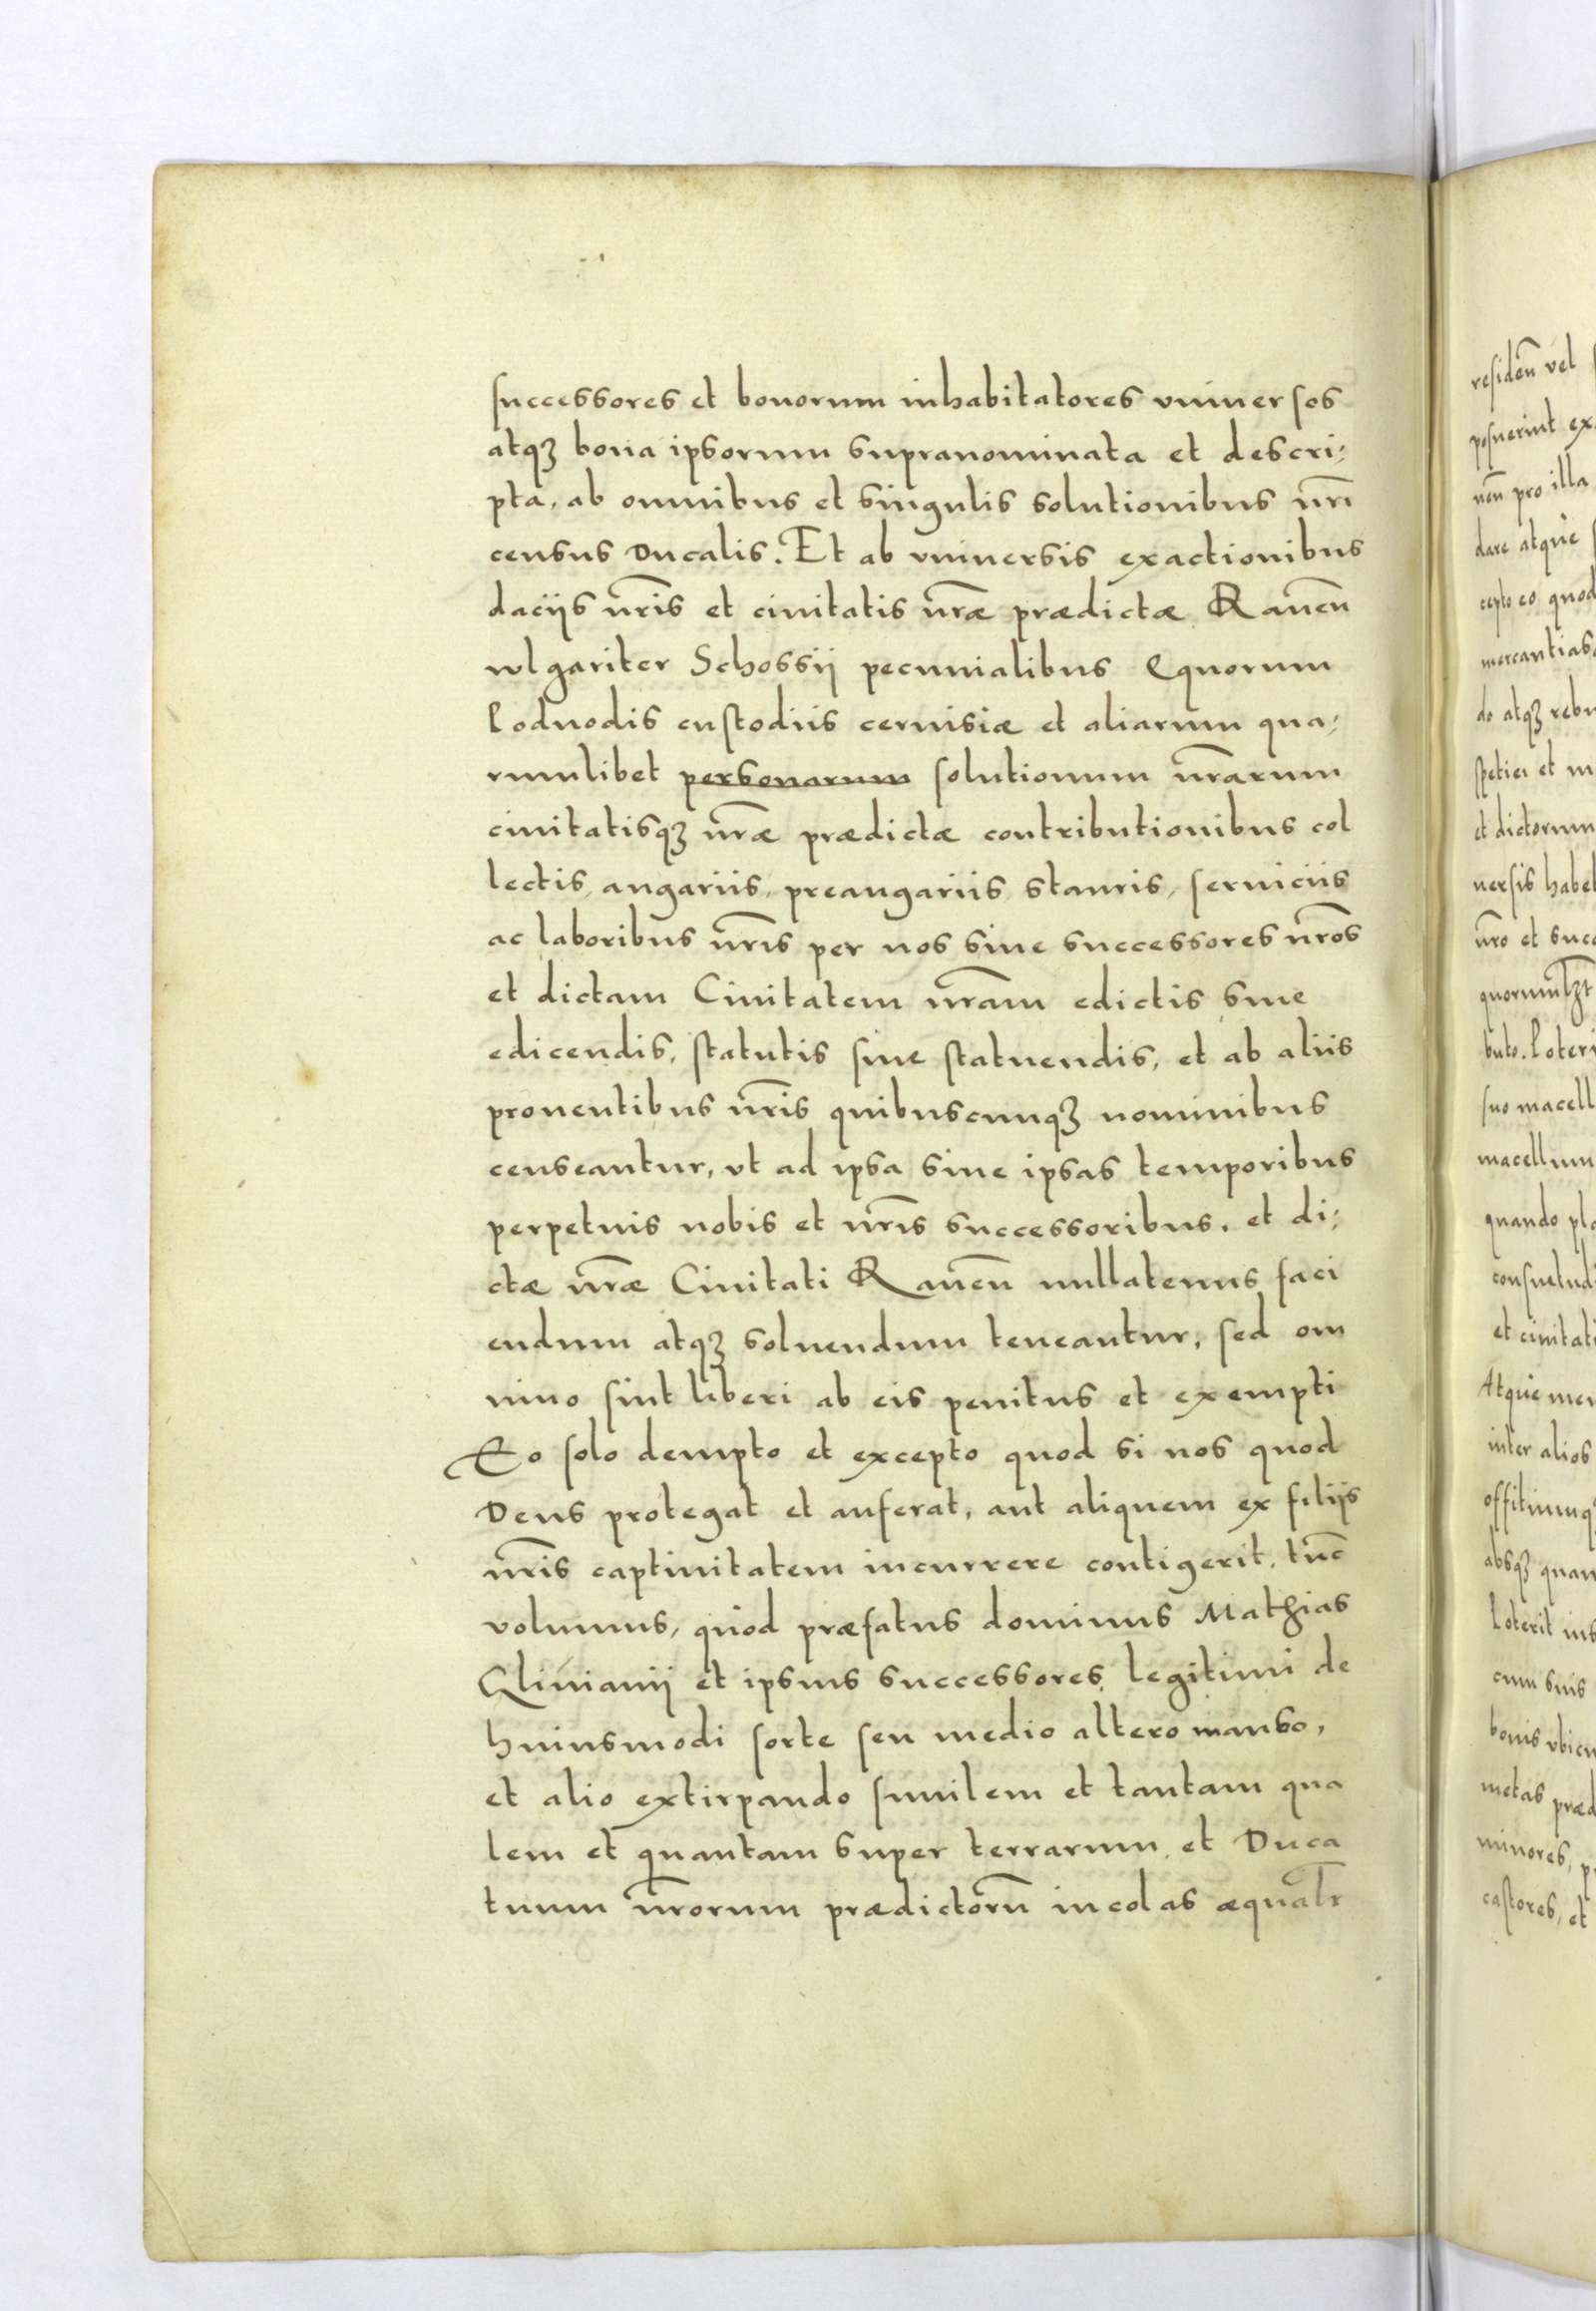 successores et bonorum inhabitatores vniuersos
atqꝫ bona ipsorum supranominata et descri;
pta, ab omnibus et singulis solutionibus nr̃i
census Ducalis. Et ab vniuersis exactionibus
daciis nr̃is et ciuitatis nr̃æ prædictæ Rauen̄
wlgariter Schossii pecunialibus Equorum
lodnodis custodiis ceruisiæ et aliarum qua;
rumlibet personarum solutionum nr̃arum
ciuitatisqꝫ nr̃æ prædictæ contributionibus col
lectis, angariis, preangariis, stauris, seruiciis
ac laboribus nr̃is per nos siue successores nr̃os
et dictam Ciuitatem nr̃am edictis siue
edicendis, statutis siue statuendis, et ab aliis
prouentibus nr̃is quibuscunqꝫ nominibus
censeantur, vt ad ipsa siue ipsas temporibus
perpetuis nobis et nr̃is successoribus, et di;
ctæ nr̃æ Ciuitati Rauen̄ nullatenus faci
endum atqꝫ soluendum teneantur, sed om
nino sint liberi ab eis penitus et exempti
Eo solo dempto et excepto quod si nos quod
Deus protegat et auferat, aut aliquem ex filiis
nr̃is captiuitatem incurrere contigerit, tūc
volumus, quòd præfatus dominus Mathias
et ipsius successores legitimi de
huiusmodi sorte seu medio altero manso,
et alio extirpando similem et tantam qua
lem et quantam super terrarum et Duca
tuum nr̃orum prædictorū incolas æqualr̃
residen̄ vel
posuerint ex
nen̄ pro illa
dare atque
cepto eo quod
mercantias
do atqꝫ rebu
spetiei et m
et dictorum
uersis habe
nr̃o et succ
buto. Poteri
suo macell
macellum
quando pla
consuetud
et ciuitati
Atque mer
inter alios
offitiumq
absqꝫ quan
Poterit ins
cum suis
bonis vbicu
metas præd
minores, p
castores, et